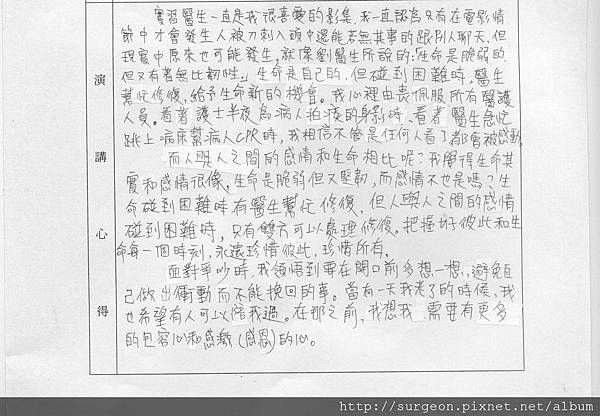 演講心得
實習醫生一直是我很喜愛的影集,我一直認為只有在電影情
節中才會發生人被刀刺入頭中還能若無其事的跟別人聊天,但
現實中原來也可能發生,就像劉醫生所說的:「生命是脆弱的,
但又有著無比韌性」,生命是自己的,但碰到困難時,醫生
幫忙修復,給予生命新的機會。我心裡由衷佩服所有醫護
人員。看著護士半夜為病人拍痰的身影時,看著醫生急忙
跳上病床幫病人CPR時,我相信不管是任何人看了都會被感動
而人與人之間的感情和生命相比呢?我覺得生命其
實和感情很像,生命是脆弱但又堅韌,而感情不也是嗎?生
命碰到困難時有醫生幫忙修復,但人與人之間的感情
碰到困難時,只有雙方可以處理修復。把握好彼此和生
命每一個時刻,永遠珍惜彼此,珍惜所有。
面對爭吵時,我領悟到要在開口前多想一想,避免自
己做出衝動而不能挽回的事。當有一天我老了的時候,我
也希望有人可以陪我過。在那之前,我想我需要有更多
的包容心和感激(感恩)的心。
http://surgeon.pixnet.net/album